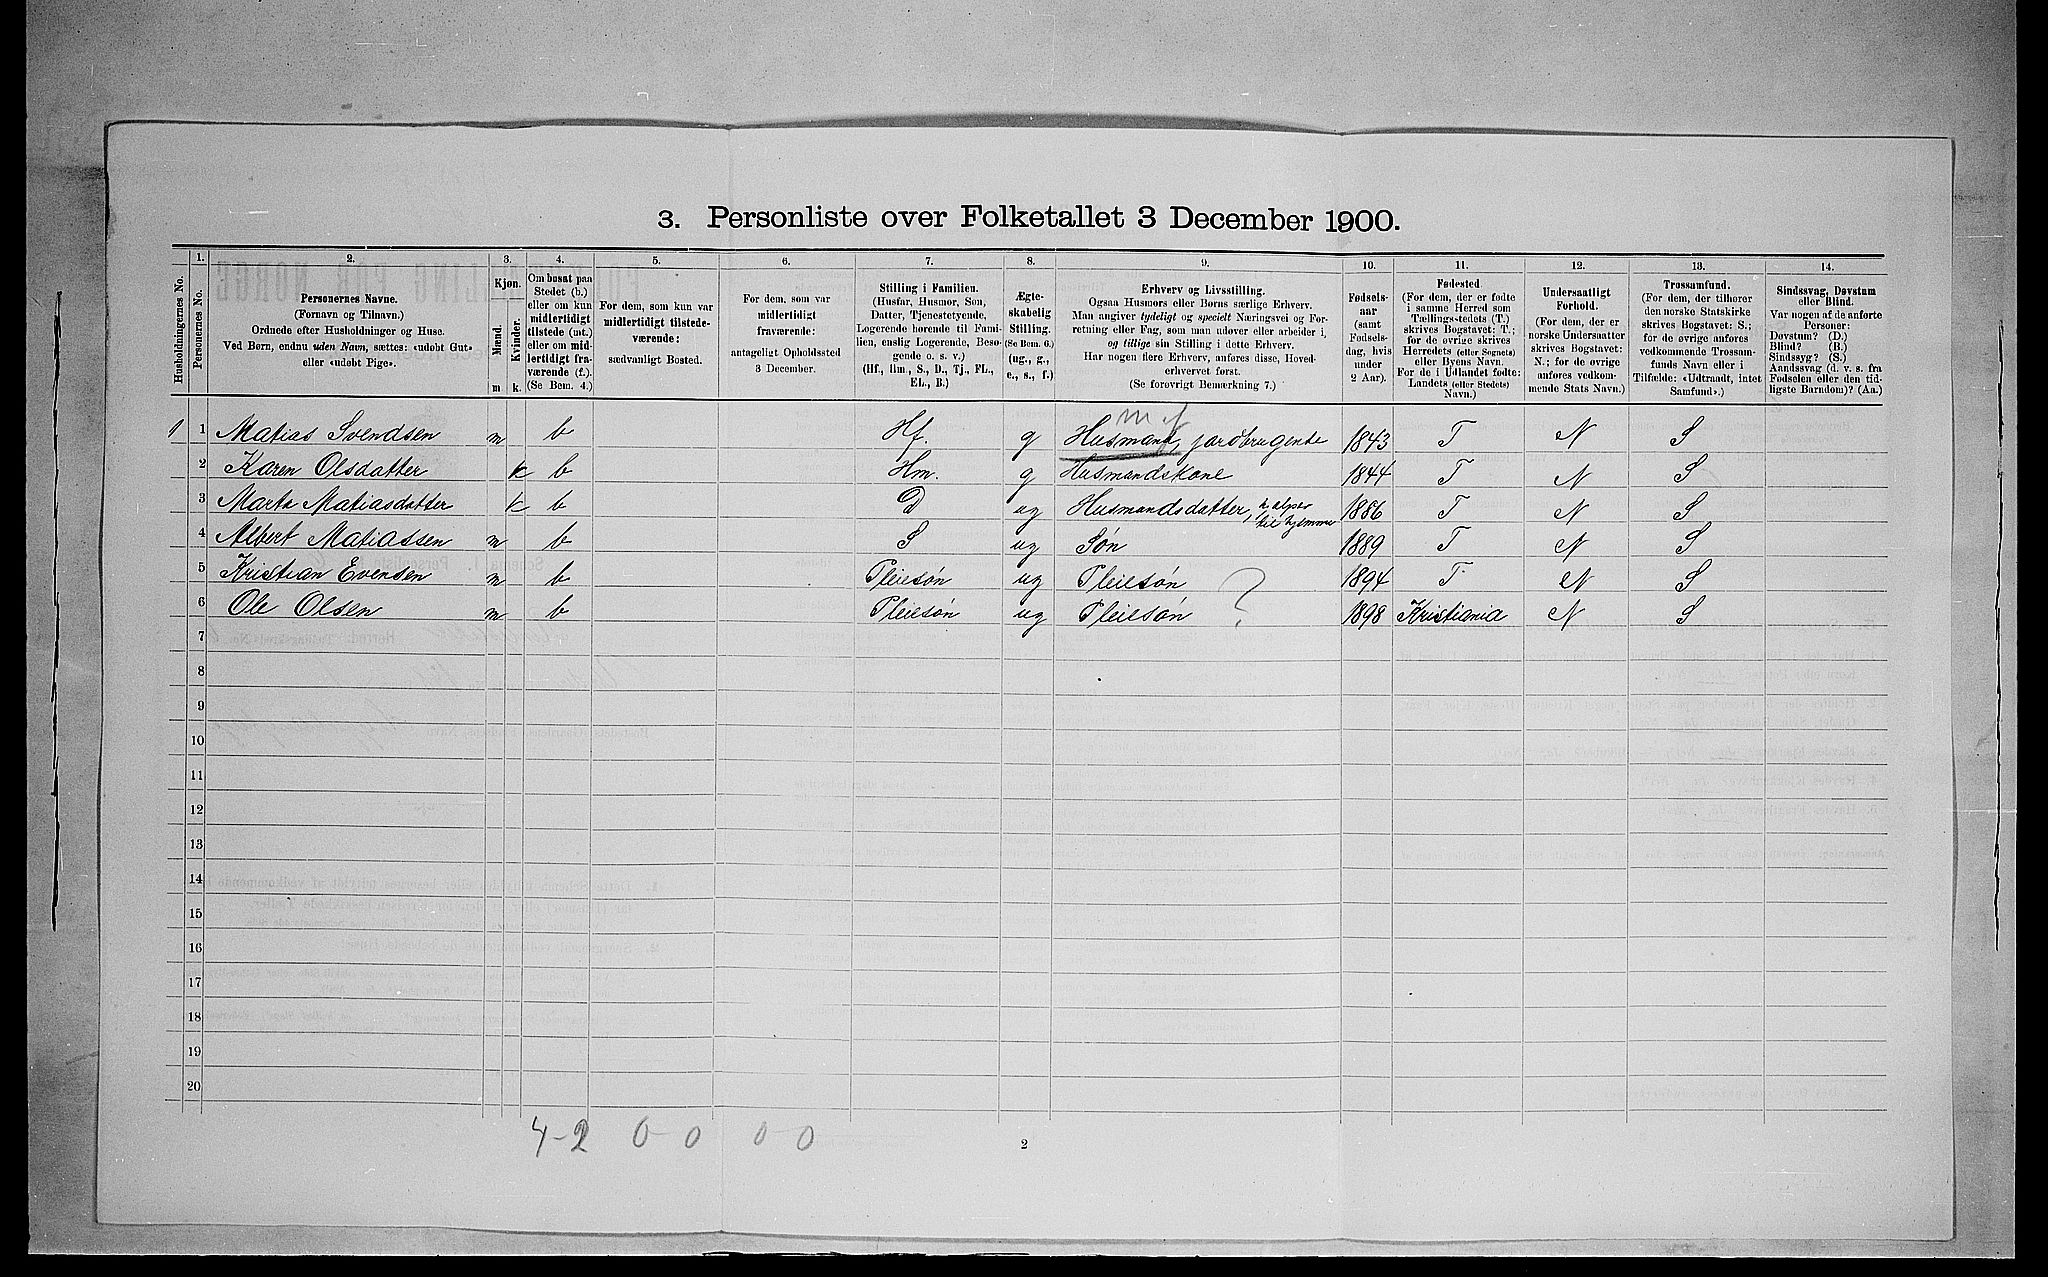 3. Personliste over Folketallet 3 December 1900.
Husholdningernes No.
1. Personernes No.
2. Personernes Navne.
(Fornavn og Tilnavn.)
Ordnede efter Husholdninger og Huse.
Ved Børn, endnu uden Navn, sættes: «udøbt Gut»
eller «udøbt Pige».
3. Kjøn.
Mænd. Kvinder.
m k.
4. Om bosat paa
Stedet (b.)
eller om kun
midlertidigt
tilstede (mt.)
eller om mid-
lertidigt fra-
værende (f.).
(Se Bem. 4.)
5. For dem, som kun var
midlertidigt tilstede-
værende:
sædvanligt Bosted.
6. For dem, som var
midlertidigt
fraværende:
antageligt Opholdssted
3 December.
7. Stilling i Familien.
(Husfar, Husmor, Søn,
Datter, Tjenestetyende,
Logerende hørende til Fami-
lien, enslig Logerende, Besø-
gende o. s. v.)
(Hf., Hm., S., D., Tj., FL.,
EL., B.)
8. Ægte-
skabelig
Stilling.
(Se Bem. 6.)
(ug., g.,
e., s., f.)
9. Erhverv og Livsstilling.
Ogsaa Husmors eller Børns særlige Erhverv.
Man angiver tydeligt og specielt Næringsvei og For-
retning eller Fag, som man udøver eller arbeider i,
og tillige sin Stilling i dette Erhverv.
Har nogen flere Erhverv, anføres disse, Hoved-
erhvervet først.
(Se forøvrigt Bemærkning 7.)
10. Fødsels-
aar
(samt
Fødsels-
dag, hvis
under
2 Aar).
11. Fødested.
(For dem, der er fødte
i samme Herred som
Tællingsstedets (T.)
skrives Bogstavet: T.;
for de øvrige skrives
Herredets (eller Sognets)
eller Byens Navn.
For de i Udlandet fødte:
Landets (eller Stedets)
Navn.)
12. Undersaatligt
Forhold.
(For dem, der er
norske Undersaatter
skrives Bogstavet:
N.; for de øvrige
anføres vedkom-
mende Stats Navn.)
13. Trossamfund.
(For dem, der tilhører
den norske Statskirke
skrives Bogstavet: S.;
for de øvrige anføres
vedkommende Trossam-
funds Navn eller i
Tilfælde: «Udtraadt, intet
Samfund».)
14. Sindssvag, Døvstum
eller Blind.
Var nogen af de anførte
Personer:
Døvstum? (D.)
Blind? (B.)
Sindssyg? (S.)
Aandssvag (d. v. s. fra
Fødselen eller den tid-
ligste Barndom)? (Aa.)
1 1 Matias Svendsen m b Hf. g Husmand, jordbrugende 1843 T N S
2 Karen Olsdatter k b Hm. g Husmandskone 1844 T N S
3 Marta Matiasdatter k b D ug Husmandsdatter, hjelper til hjemme 1886 T N S
4 Albert Matiassen m b S ug Søn 1889 T N S
5 Kristian Evensen m b Pleiesøn ug Pleiesøn 1894 T N S
6 Ole Olsen m b Pleiesøn ug Pleiesøn ? 1898 Kristiania N S
7
8
9
10
11
12
13
14
15
16
17
18
19
20
4-2 0-0 0-0
2